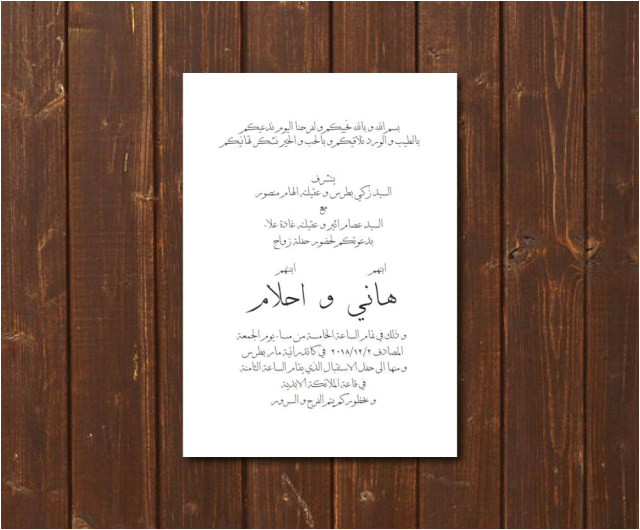 بسم الله و بالله نحييكم و لفرحنا اليوم ندعيكم
بالطيب و الورد نلاقيكم و بالحب و الخير نشكر لهانيكم
يتشرف
السيد زكي بطرس و عقيلته الهام منصور
مع
السيد عصام اثير و عقيلته غادة علاء
بدعوتكم لحضور حفلة زواج
ابنهم ابنتهم
هاني و احلام
و ذلك في تمام الساعة الخامسة من مساء يوم الجمعة
المصادف ٢٠١٨/١٢/٢ في كاتدرائية مار بطرس
و منها الى حفل الاستقبال الذي يقام الساعة الثامنة
في قاعة الملائكة الابدية
و بحضوركم يتم الفرح و السرور